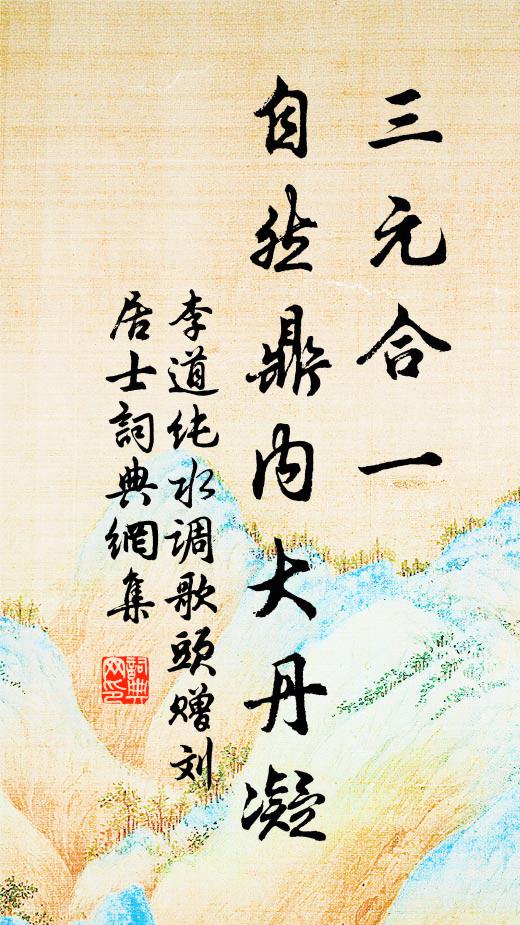 三元合一
自然鼎内大丹凝
李道纯水调歌頭赠刘
居士詞典網集
詞典
网印